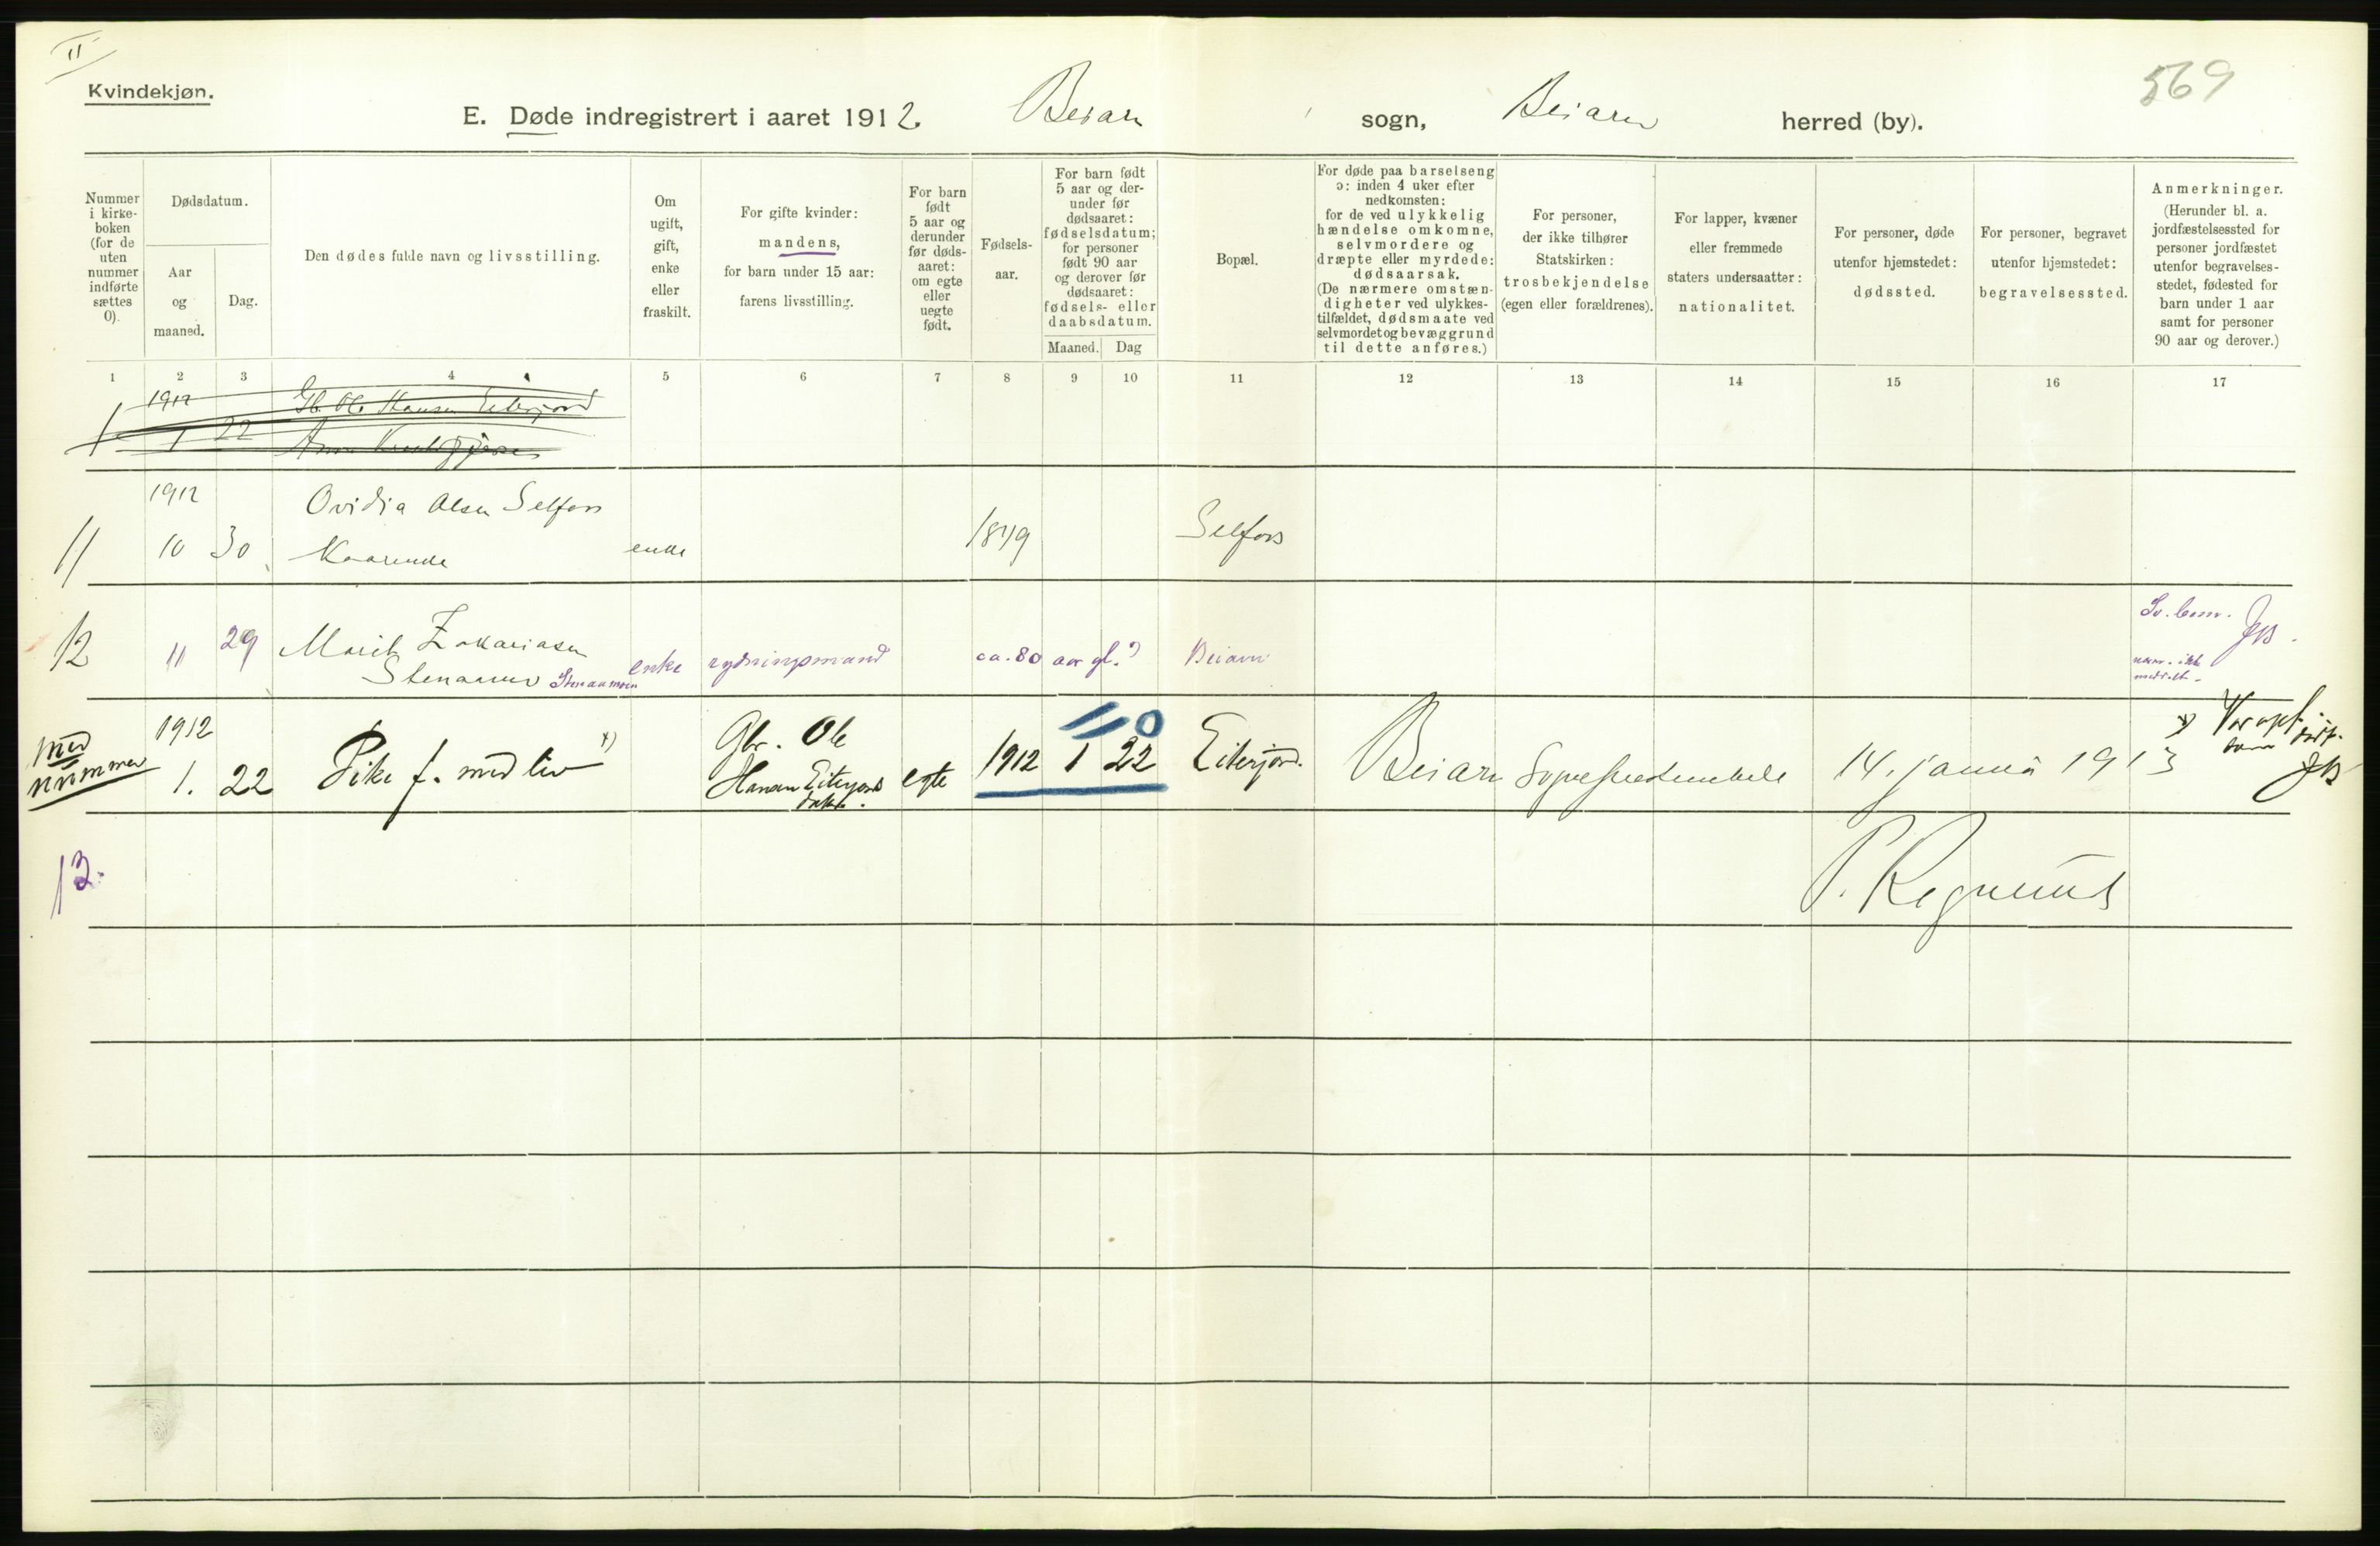 II
Kvindekjøn.
569
E. Døde indregistrert i aaret 1912. Beiarn sogn, Beiarn herred (by).
Nummer i kirke- boken (for de uten nummer indførte sættes 0).
Dødsdatum.
Aar og maaned.
Dag.
Den dødes fulde navn og livsstilling.
Om ugift, gift, enke eller fraskilt.
For gifte kvinder: mandens, for barn under 15 aar: farens livsstilling.
For barn født 5 aar og derunder før døds- aaret: om egte eller uegte født.
Fødsels- aar.
For barn født 5 aar og der- under før dødsaaret: fødselsdatum; for personer født 90 aar og derover før dødsaaret: fødsels- eller daabsdatum.
Maaned. Dag
Bopæl.
For døde paa barselseng ɔ: inden 4 uker efter nedkomsten: for de ved ulykkelig hændelse omkomne, selvmordere og dræpte eller myrdede: dødsaarsak. (De nærmere omstæn- digheter ved ulykkes- tilfældet, dødsmaate ved selvmordet og bevæggrund til dette anføres.)
For personer, der ikke tilhører Statskirken: trosbekjendelse (egen eller forældrenes).
For lapper, kvæner eller fremmede staters undersaatter: nationalitet.
For personer, døde utenfor hjemstedet: dødssted.
For personer, begravet utenfor hjemstedet: begravelsessted.
Anmerkninger. (Herunder bl. a. jordfæstelsessted for personer jordfæstet utenfor begravelses- stedet, fødested for barn under 1 aar samt for personer 90 aar og derover.)
1 2 3 4 5 6 7 8 9 10 11 12 13 14 15 16 17
1912 Gb. Ole Hansen Eiterjord
1 1 22
1912 Ovidia Olsen Selfors
11 10 30 Kaarenke enke 1849 Selfors
12 11 29 Marit Zakariasen
Stenaamo Stenaamoen enke rydningsmand ca. 80 aar gl.? Beiarn
1912 Gbr. Ole 110
nummer 1. 22 Pike f. med liv x) Hansen Eiterjords egte 1912 1 22 Eiterjord. Beiarn Sogneprestembede 14. januar 1913
13. P. Regnund